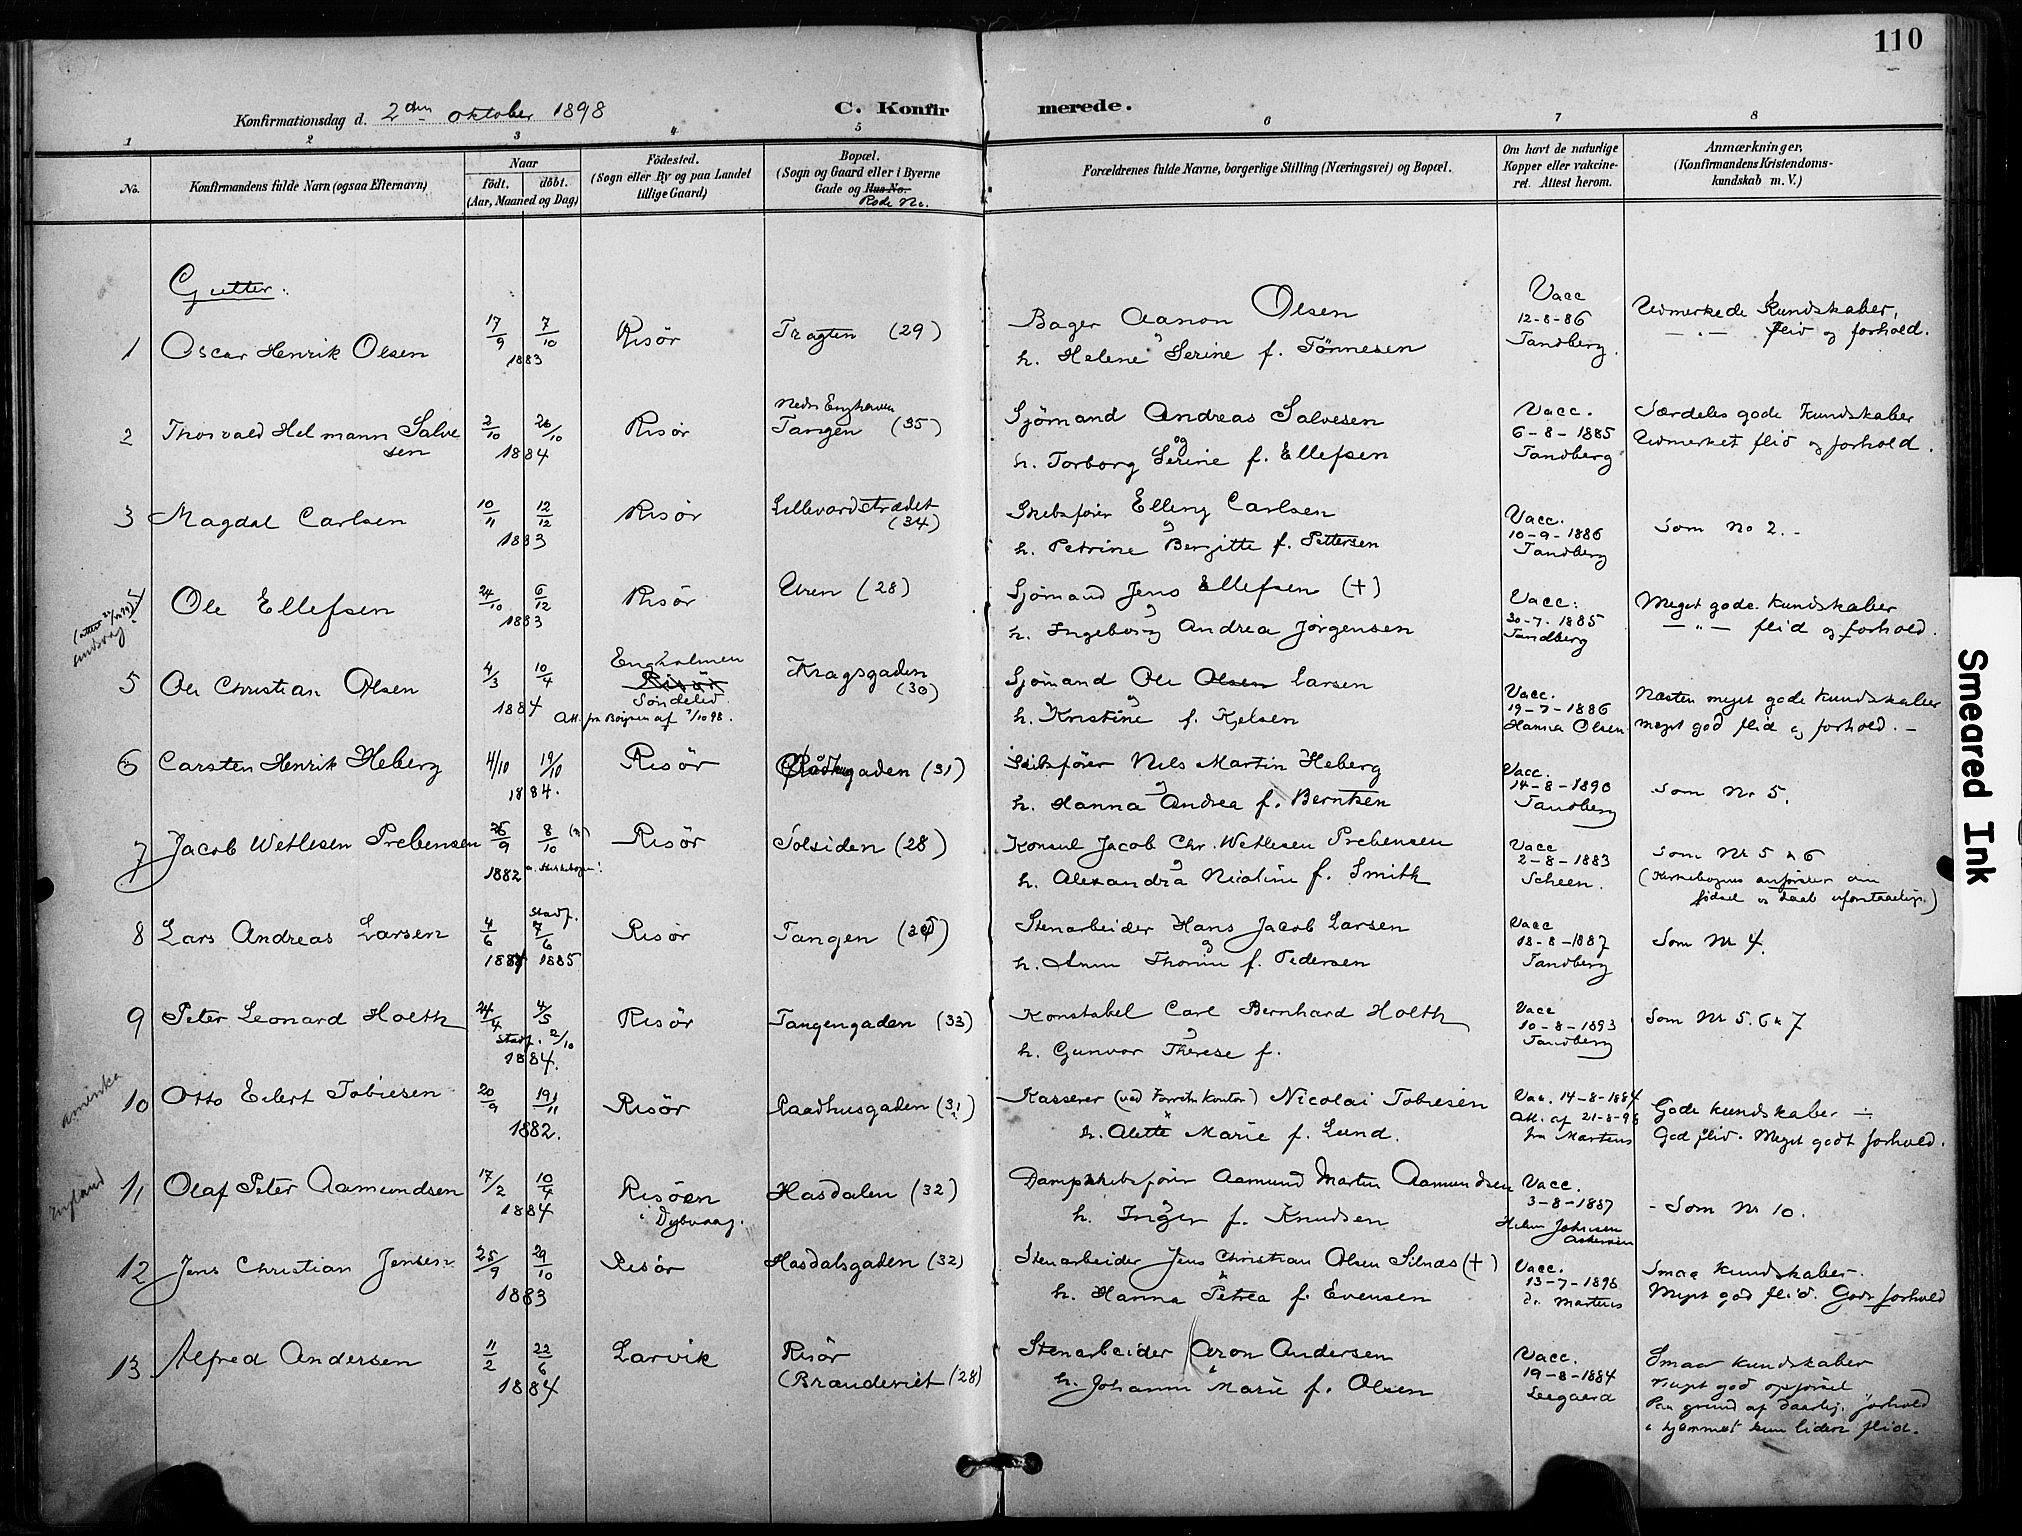 110
Konfirmationsdag d. 2den oktober 1898
C. Konfirmerede.
1 2 3 4 5 6 7 8
No.
Konfirmandens fulde Navn (ogsaa Efternavn)
Naar
födt. döbt.
(Aar, Maaned og Dag)
Födested.
(Sogn eller By og paa Landet
tillige Gaard)
Bopæl.
(Sogn og Gaard eller i Byerne
Gade og Hus No.
Rode No.
Forældrenes fulde Navne, borgerlige Stilling (Næringsvei) og Bopæl.
Om havt de naturlige
Kopper eller vakcine-
ret. Attest herom.
Anmærkninger,
(Konfirmandens Kristendoms-
kundskab m. V.)
Gutter.
1 Oscar Henrik Olsen 17/9 7/10 1883 Risör Tragten (29)
Bager Aanon Olsen
og
h. Helene Serine f. Tönnesen
Vacc
12-8-86
Tandberg.
Udmerkede Kundskaber,
— " — flid og forhold.
2 Thorvald Helmann Salve
sen 2/10 26/10 1884 Risör
Tangen (35)
Sjömand Andreas Salvesen
og
h. Torborg Serine f. Ellefsen
Vacc.
6-8-1885
Tandberg
Særdeles gode Kundskaber
Udmerket flid og forhold.
3 Magdal Carlsen 10/11 12/12 1883 Risör Lillevardstrædet
(34)
Skibsförer Elling Carlsen
og
h. Petrine Bergitte f. Pettersen
Vacc.
10-9-1886
Tandberg
Som No 2.-
4 Ole Ellefsen 24/10 6/12 1883 Risör Uren (28)
Sjömand Jens Ellefsen (+)
og
h. Ingeborg Andrea Jörgensen
Vacc.
30-7-1885
Tandberg
Meget gode kundskaber
— " — flid og forhold.
5 Ole Christian Olsen 4/3 10/4 1884
Engholmen
Risör
Söndeled.
Att. fra af 7/10 98.
Kragsgaden
(30)
Sjömand Ole Olsen Larsen
og
h. Kristine f. Kjelsen
Vacc.
19-7-1886
Hanna Olsen
Næsten meget gode Kundskaber
meget god flid og forhold.-
6 Carsten Henrik Heberg 4/10 19/10 1884. Risör Raadhusgaden (31)
Skibsförer Nils Martin Heberg
og
h. Hanna Andrea f. Berntsen
Vacc.
14-8-1890
Tandberg
Som Nr 5.
7 Jacob Wetlesen Prebensen 26/9 8/10 1882 Risör Solsiden (28)
Konsul Jacob Chr. Wetlesen Prebensen
og
h. Alexandra Nicoline f. Smith
Vacc
2-8-1883
Scheen.
Som Nr 5 & 6
(Kirkebogens anförsler om
födsel og daab)
8 Lars Andreas Larsen 4/6 1884
Stadf.
7/6 1885
Risör Tangen (35)
Stenarbeider Hans Jacob Larsen
og
h. Anne f. Pedersen
Vacc
18-8-1887
Tandberg
Som Nr 4.
9 Peter Leonard Holth 24/4 4/5
Stadf. 2/10
1884.
Risör Tangengaden (33)
Konstabel Carl Bernhard Holth
og
h. Gunvor Therese f.
Vacc
10-8-1893
Tandberg
Som Nr 5. 6 & 7
amerika
10 Otto Edert Tobiesen 20/9 19/11 1882. Risör Raadhusgaden (31)
Kasserer Nicolai Tobiesen
&
h. Alette Marie f. Lund.
Vac. 14-8-1884
Att. af 21-8-98
fra Martens
Gode kundskaber
God flid. Meget godt forhold.
England
11 Olaf Peter Aamundsen 17/2 10/4 1884 Risöen
i Dybvaag. Hasdalen (32)
Dampskibsförer Aamund Martin Aamundsen
&
h. Inger f. Knudsen
Vacc.
3-8-1887
- Som Nr 10.
12 Jens Christian Jensen 25/9 29/10 1883 Risör Hasdalsgaden (32)
Stenarbeider Jens Christian Olsen (+)
&
h. Hanna Petrea f. Evensen
Vacc.
13-7-1898
Dr. Martens
Smaa kundskaber.
Meget god flid. Godt forhold
13 Alfred Andersen 11/2 22/6 1884 Larvik Risör
(Branderiet (28)
Stenarbeider Aron Andersen
&
h. Johanne Marie f. Olsen
Vacc.
19-8-1884
Leegaard
Smaa kundskaber
meget god opförsel
Paa grund af daarlig forhold
i hjemmet kun liden flid.
Smeared Ink